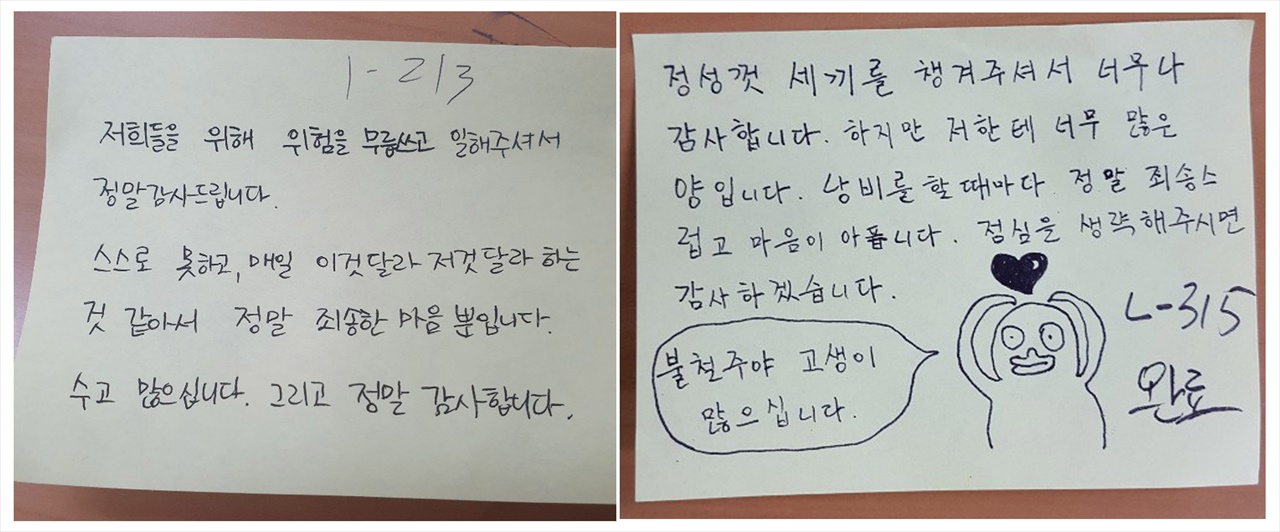 1-213
저희들을 위해 위험을 무릅쓰고 일해주셔서
정말감사드립니다.
스스로 못하고, 매일 이것달라 저것달라 하는
것 같아서 정말 죄송한 마음 뿐입니다.
수고 많으십니다. 그리고 정말 감사합니다.
정성껏 세끼를 챙겨주셔서 너무나
감사합니다. 하지만 저한테 너무 많은
양입니다. 낭비를 할때마다 정말 죄송스
럽고 마음이 아픕니다. 점심을 생략해주시면
감사하겠습니다.
불철주야 고생이
많으십니다.
L-315
완료